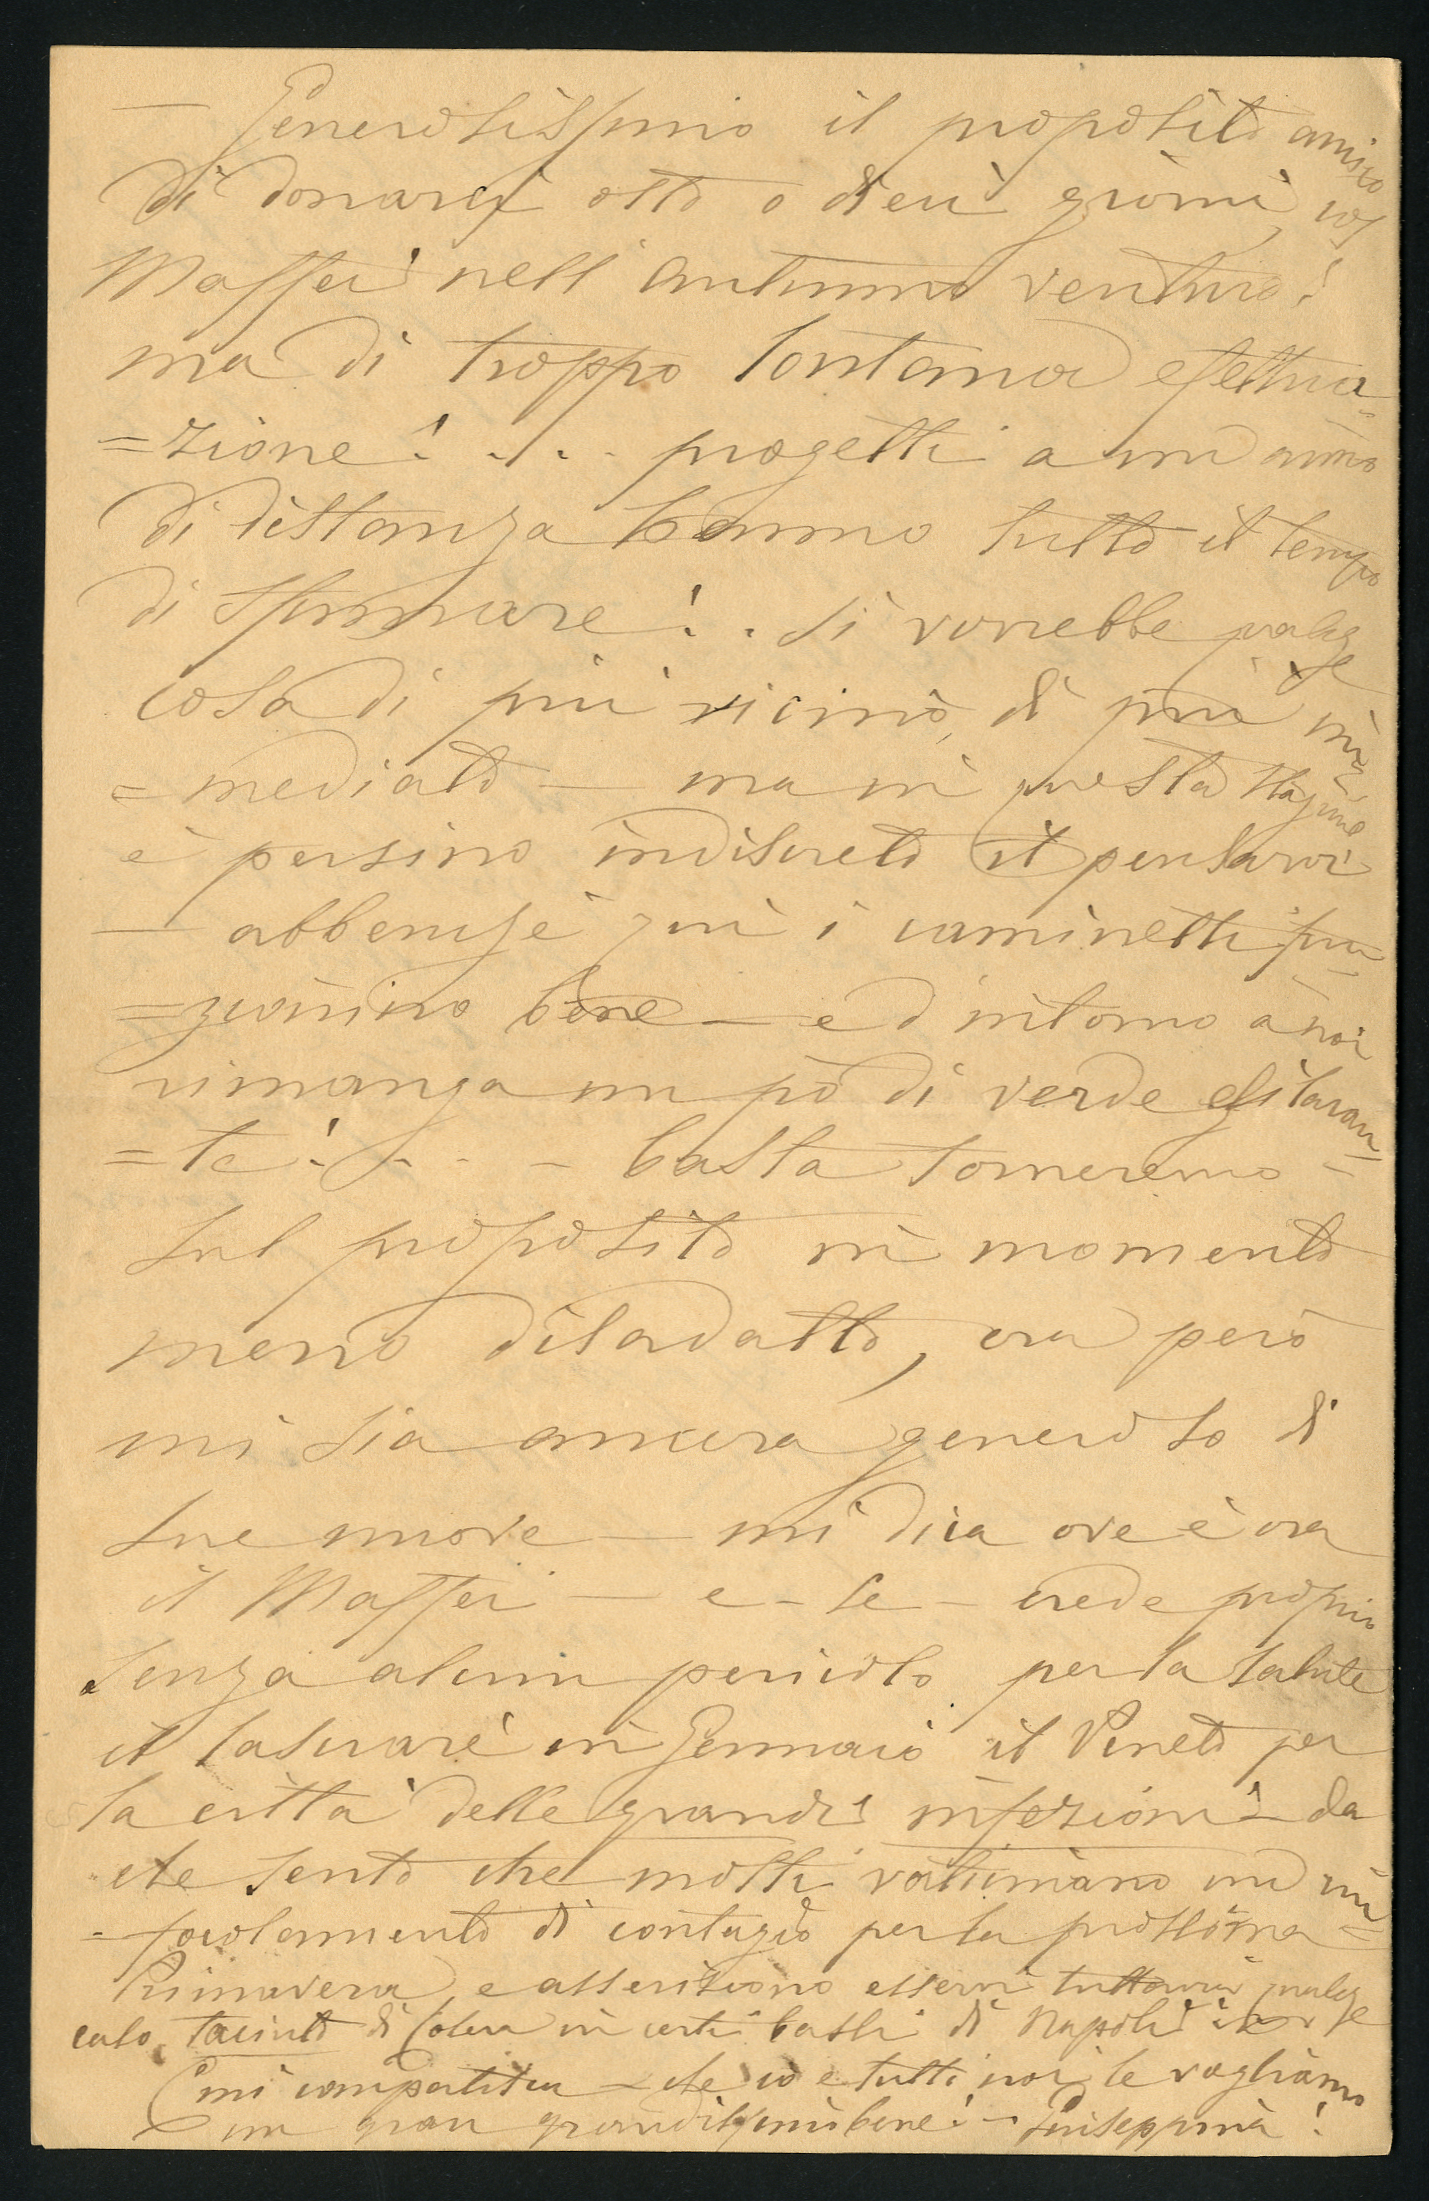 — Generosissimo il proposito amico
di donarci otto o dieci giorni, col
Maffei nell'autunno venturo!
ma di troppo lontana effettua-
=zione! . . . progetti a un anno
di distanza hanno tutto il tempo
di sfumare! . . Si vorrebbe qualche
cosa di più vicino, di più im=
=mediato — ma in questa stagione
è persino indiscreto il pensarvi
— abbenchè quì i caminetti fun
=zionino bene — ed intorno a noi
rimanga un pò di verde esilaran=
=te! . . . . basta torneremo
sul proposito in momento
meno disadatto, ora però
mi sia ancora generoso di
sue nuove — mi dica ove è ora
il Maffei — e - se - crede proprio
senza alcun pericolo per la salute
il lasciare in Gennaio il Veneto per
la città delle grandi infezioni — da
che sento che molti vaticinano un rin
=focolamento di contagio per la prossima
Primavera, e asseriscono esservi tuttavia qualche
caso taciuto di colera in certi bassi di Napoli
E mi compatisca — che io e tutti noi le vogliamo
un gran grandissimo bene! — Giuseppina!